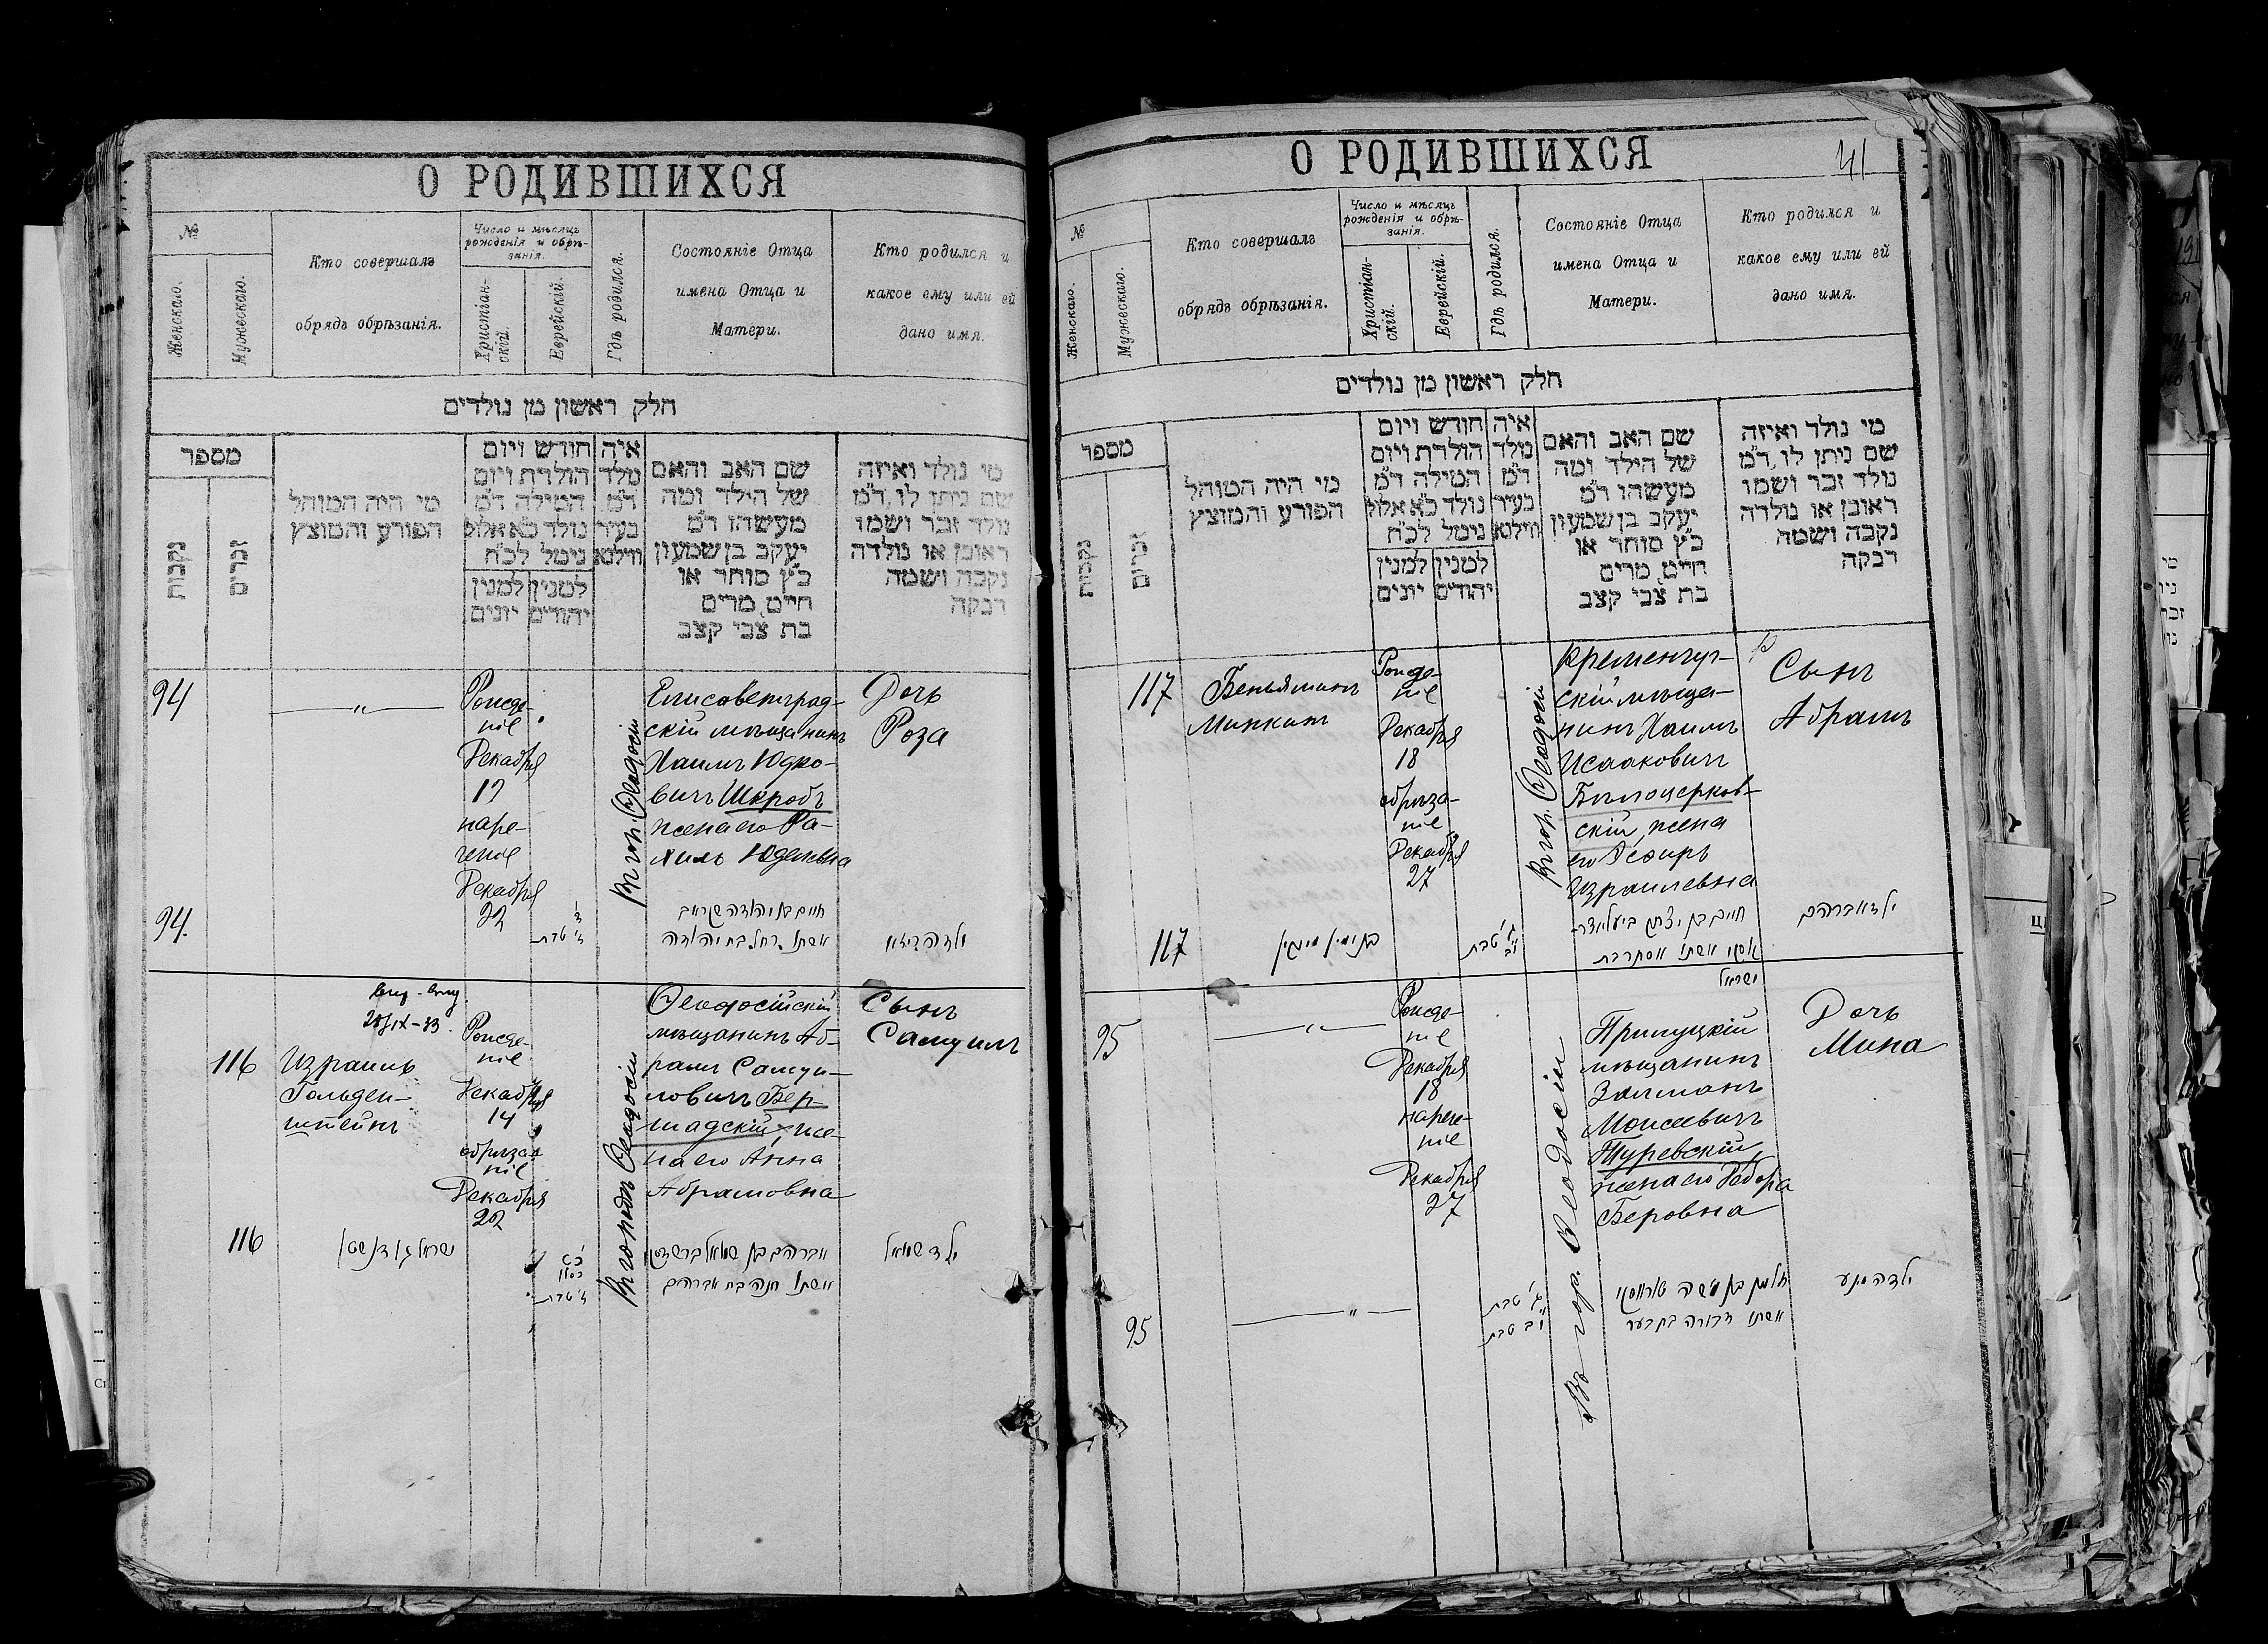 О РОДИВШИХСЯ
№
Женскаго.
Мужескаго.
Кто совершалъ
обрядъ обрѣзанія.
Число и мѣсяцъ
рожденія и обрѣ-
занія.
Христіан-
скій.
Еврейскій.
Гдѣ родился.
Состояніе Отца
имена Отца и
Матери.
Кто родился и
какое ему или ей
дано имя.
חלק ראשון מן נולדים
מספר
נקבות
זכרים
מי היה המוהל
הפורע והמוצץ
חודש ויום
הולדת ויום
המילה ד״מ
נולד כ״א אלול
נימל לכ״ח
למנין
יהודים
למנין
יונים
איה
נולד
ד״מ
בעיר
ווילנא
שם האב והאם
של הילד ומה
מעשהו ד״מ
יעקב בן שמעון
כ״ץ סוחר או
חיים, מרים
בת צבי קצב
מי נולד ואיזה
שם ניתן לו, ד״מ
נולד זכר ושמו
ראובן או נולדה
נקבה ושמה
רבקה
94
— „ —
Рожде-
ніе
Декабря
17
наре-
ченіе
Декабря
22
Въ гор. Ѳеодосіи
Елисаветград-
скій мѣщанинъ
Хаимъ Юдко-
вичъ Шкробъ
жена его Ра-
хиль Юделевна
Дочь
Роза
94.
ז׳ טבת
חיים בן יהודה שקראב
אשתו רחל בת יהודה
ילדה ריזא
28/IX-33.
116
Израиль
Гольден-
штейнъ
Рожде-
ніе
Декабря
14
обрѣза-
ніе
Декабря
22
Въ городѣ Ѳеодосіи
Ѳеодосійскій
мѣщанинъ Аб-
рамъ Самуи-
ловичъ Бер-
шадскій, же-
на его Анна
Абрамовна
Сынъ
Самуилъ
116
ישראל גולדנשטיין
כ״ט
כסלו
ז׳ טבת
אברהם בן שמואל ברשדסקי
אשתו חנה בת אברהם
ילד שמואל
О РОДИВШИХСЯ
41
№
Женскаго.
Мужескаго.
Кто совершалъ
обрядъ обрѣзанія.
Число и мѣсяцъ
рожденія и обрѣ-
занія.
Христіан-
скій.
Еврейскій.
Гдѣ родился.
Состояніе Отца
имена Отца и
Матери.
Кто родился и
какое ему или ей
дано имя.
חלק ראשון מן נולדים
מספר
נקבות
זכרים
מי היה המוהל
הפורע והמוצץ
חודש ויום
הולדת ויום
המילה ד״מ
נולד כ״א אלול
נימל לכ״ח
למנין
יהודים
למנין
יונים
איה
נולד
ד״מ
בעיר
ווילנא
שם האב והאם
של הילד ומה
מעשהו ד״מ
יעקב בן שמעון
כ״ץ סוחר או
חיים, מרים
בת צבי קצב
מי נולד ואיזה
שם ניתן לו, ד״מ
נולד זכר ושמו
ראובן או נולדה
נקבה ושמה
רבקה
117
Беньяминъ
Минкинъ
Рожде-
ніе
Декабря
18
обрѣза-
ніе
Декабря
27
Въ гор. Ѳеодосіи
Кременчуг-
скій мѣща-
нинъ Хаимъ
Исааковичъ
Бѣлоцерков-
скій, жена
его Эсфирь
Израилевна
Сынъ
Абрамъ
117
בנימין מינקין
ג׳ טבת
י״ב
חיים בן יצחק ביעלאצר-
אשתו אסתר בת
ישראל
ילד אברהם
95
— „ —
Рожде-
ніе
Декабря
18
нарече-
ніе
Декабря
27
Въ гор. Ѳеодосіи
Прилуцкій
мѣщанинъ
Залманъ
Моисеевичъ
Туревскій,
жена его Дебора
Беровна
Дочь
Мина
95
— „ —
ג׳ טבת
י״ב טבת
זלמן בן משה טוראווסקי
אשתו דבורה בת בער
ילדה מינע